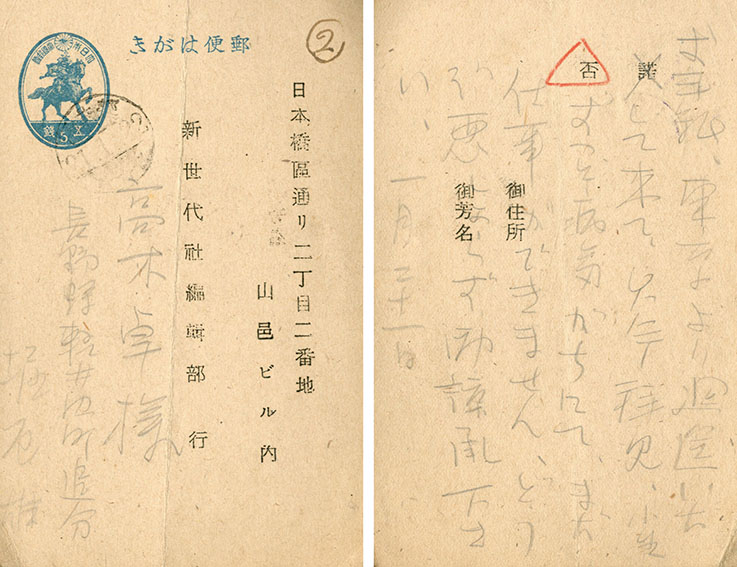 郵便はがき
②
日本橋區通リ二丁目二番地
山邑ビル内
新世代社編輯部 行
高木卓様
長野縣軽井沢町追分
堀辰雄
諾
否
お手紙、東京より廻送いた
して来て只今拝見、小生
ずっと病気がちにて、まだ
仕事ができません、どう
か悪しからず御諒承下さ
い、 一月二十一日
御住所
御芳名